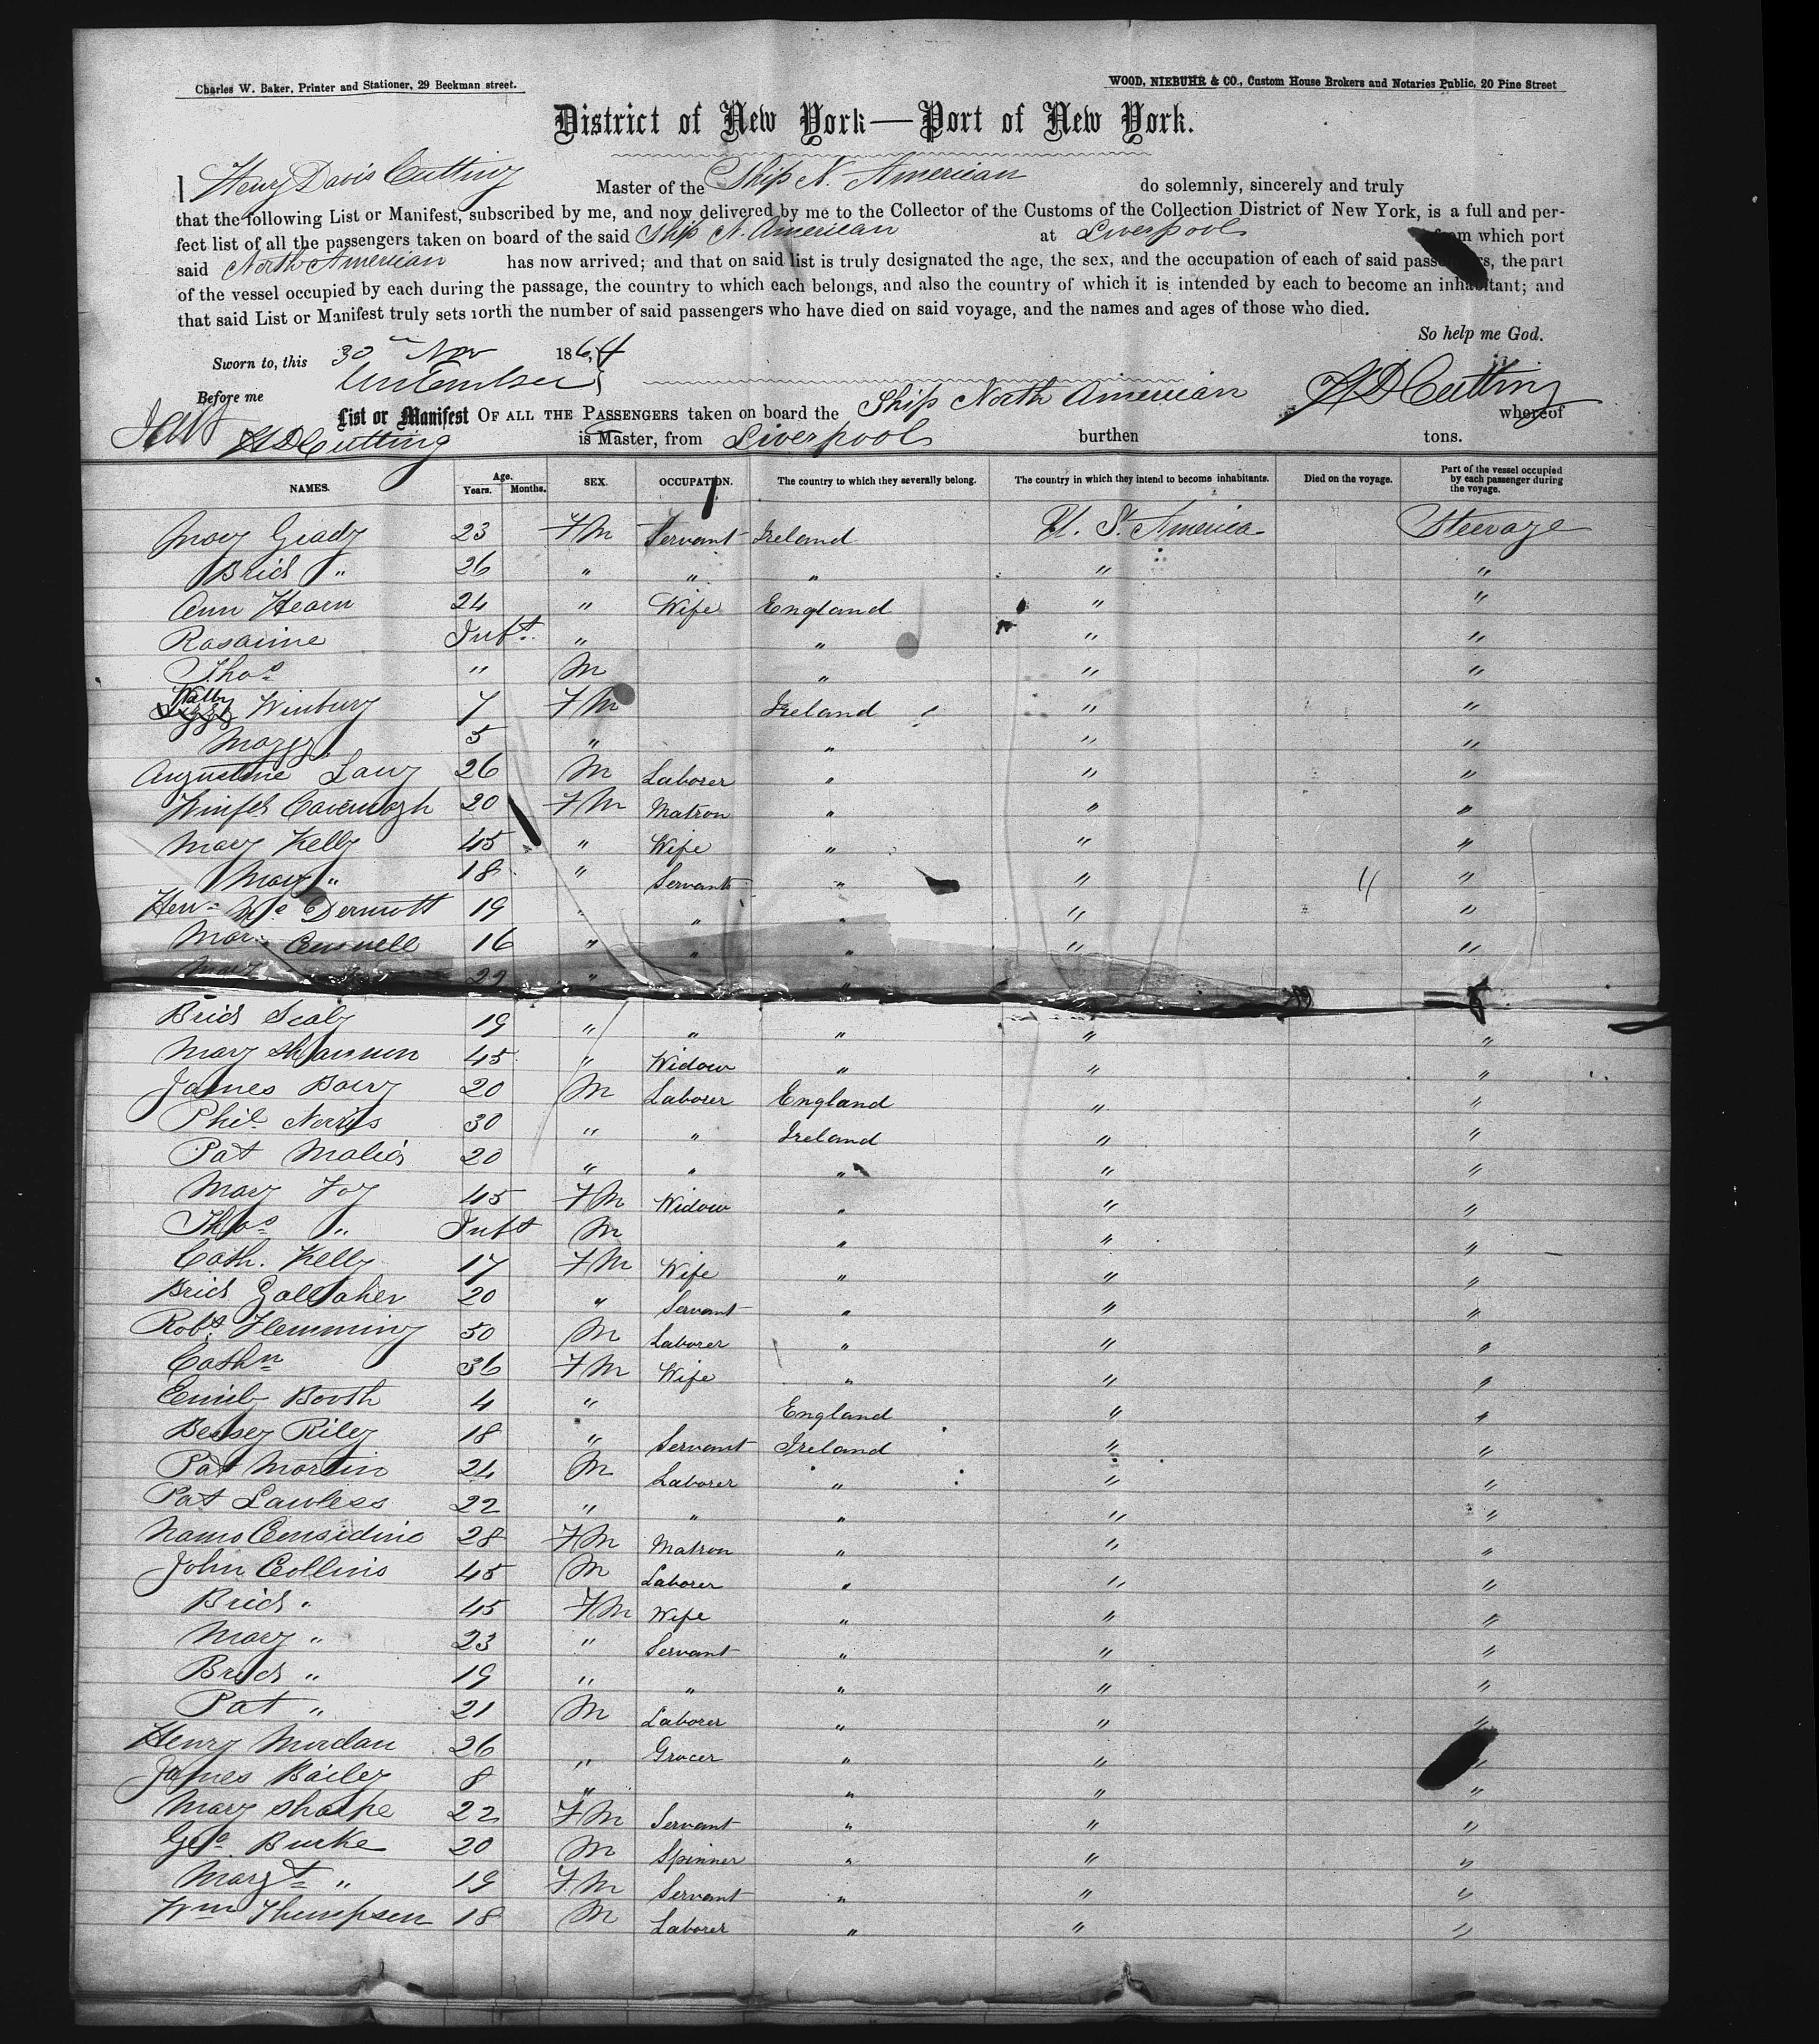 Charles W. Baker, Printer and Stationer, 29 Beekman street.
WOOD, NIEBUHR & CO., Custom House Brokers and Notaries Public, 20 Pine Street
District of New York—Port of New York.
I Henry Davis Cutting Master of the Ship N. American do solemnly, sincerely and truly
that the following List or Manifest, subscribed by me, and now delivered by me to the Collector of the Customs of the Collection District of New York, is a full and per-
fect list of all the passengers taken on board of the said Ship N. American at Liverpool from which port
said North American has now arrived; and that on said list is truly designated the age, the sex, and the occupation of each of said passengers, the part
of the vessel occupied by each during the passage, the country to which each belongs, and also the country of which it is intended by each to become an inhabitant; and
that said List or Manifest truly sets forth the number of said passengers who have died on said voyage, and the names and ages of those who died.
So help me God.
Sworn to, this 30th Nov 1864
Before me
H D Cutting
List or Manifest OF ALL THE PASSENGERS taken on board the Ship North American whereof
H D Cutting is Master, from Liverpool burthen tons.
NAMES. Age. Years. Months. SEX. OCCUPATION. The country to which they severally belong. The country in which they intend to become inhabitants. Died on the voyage. Part of the vessel occupied by each passenger during the voyage.
Mary Grady 23 FM Servant Ireland U. St. America Steerage
Brid " 26 " " " " "
Ann Hearn 24 " Wife England " "
Rosanne Inft. " " " "
Thos " M " " "
Winbury 7 FM Ireland " "
5 " " " "
Augustine 26 M Laborer " " "
Cavernagh 20 FM Matron " " "
Mary Kelly 45 " Wife " " "
Mary " 18 " Servant " " "
Mc Dermott 19 " " " " "
Mar. 16 " " " " "
Mary 22 " "
Brid Scaly 19 " " " " "
Mary Shannon 45 " Widow " " "
James 20 M Laborer England " "
Phil. Norris 30 " " Ireland " "
Pat 20 " " " " "
Mary Foy 45 FM Widow " " "
Thos " Inft M " " "
Cath. Kelly 17 FM Wife " " "
Brid Gallaher 20 " Servant " " "
Robt. Flemming 50 M Laborer " " "
Cathn 36 FM Wife " " "
Emily Booth 4 " England " "
Betsey Riley 18 " Servant Ireland " "
Pat Martin 24 M Laborer " " "
Pat Lawless 22 " " " " "
Considine 28 FM Matron " " "
John Collins 45 M Laborer " " "
Brid " 45 FM Wife " " "
Mary " 23 " Servant " " "
Brid " 19 " " " " "
Pat " 21 M Laborer " " "
Henry 26 " Grocer " " "
James Bailey 8 " " " "
Mary Sharpe 22 FM Servant " " "
Geo. Burke 20 M Spinner " " "
Margt " 19 FM Servant " " "
Wm Thompson 18 M Laborer " " "